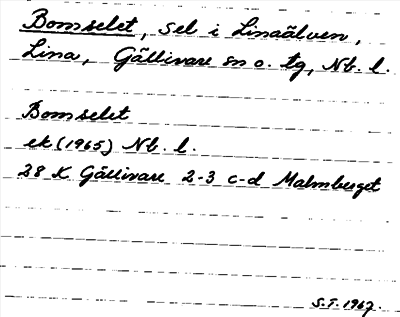 Bomselet, sel i Linaälven,
Lina, Gällivare sn o. tg, Nb. l.
Bomselet
ek (1965) Nb. l.
28 K Gällivare 2-3 c-d Malmberget
S.T. 1967.